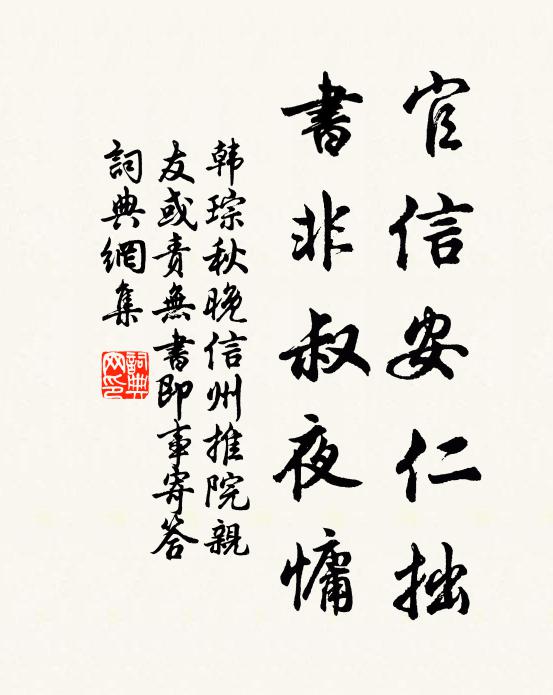 官信安仁拙
書非叔夜慵
韩琮秋晚信州推院親
友或责無書即事寄答
詞典網集
詞典網印